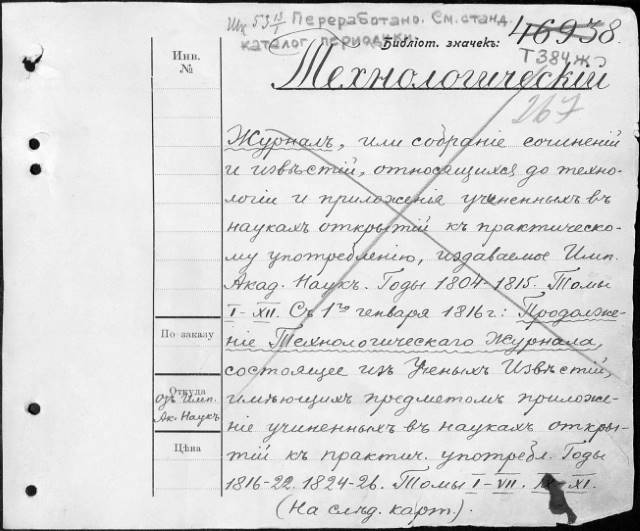 Переработано. См. станд.
каталог периодики.
Библіот. значекъ: 46958.
Т384ж
Инв.
№
Технологическій
267
Журналъ, или собраніе сочиненій
и извѣстій, относящихся до техно-
логіи и приложенія учиненныхъ въ
наукахъ открытій къ практическо-
му употребленію, издаваемое Имп.
Акад. Наукъ. Годы 1804-1815. Томы
I-XII. Съ 1го генваря 1816 г: Продолже-
ніе Технологическаго Журнала,
состоящее изъ Ученыхъ Извѣстій,
имѣющихъ предметомъ приложе-
ніе учиненныхъ въ наукахъ откры-
тій къ практич. употребл. Годы
1816-22. 1824-26. Томы I-VII. IX-XI.
(На слѣд. карт.).
По заказу
Откуда
отъ Имп.
Ак. Наукъ
Цѣна